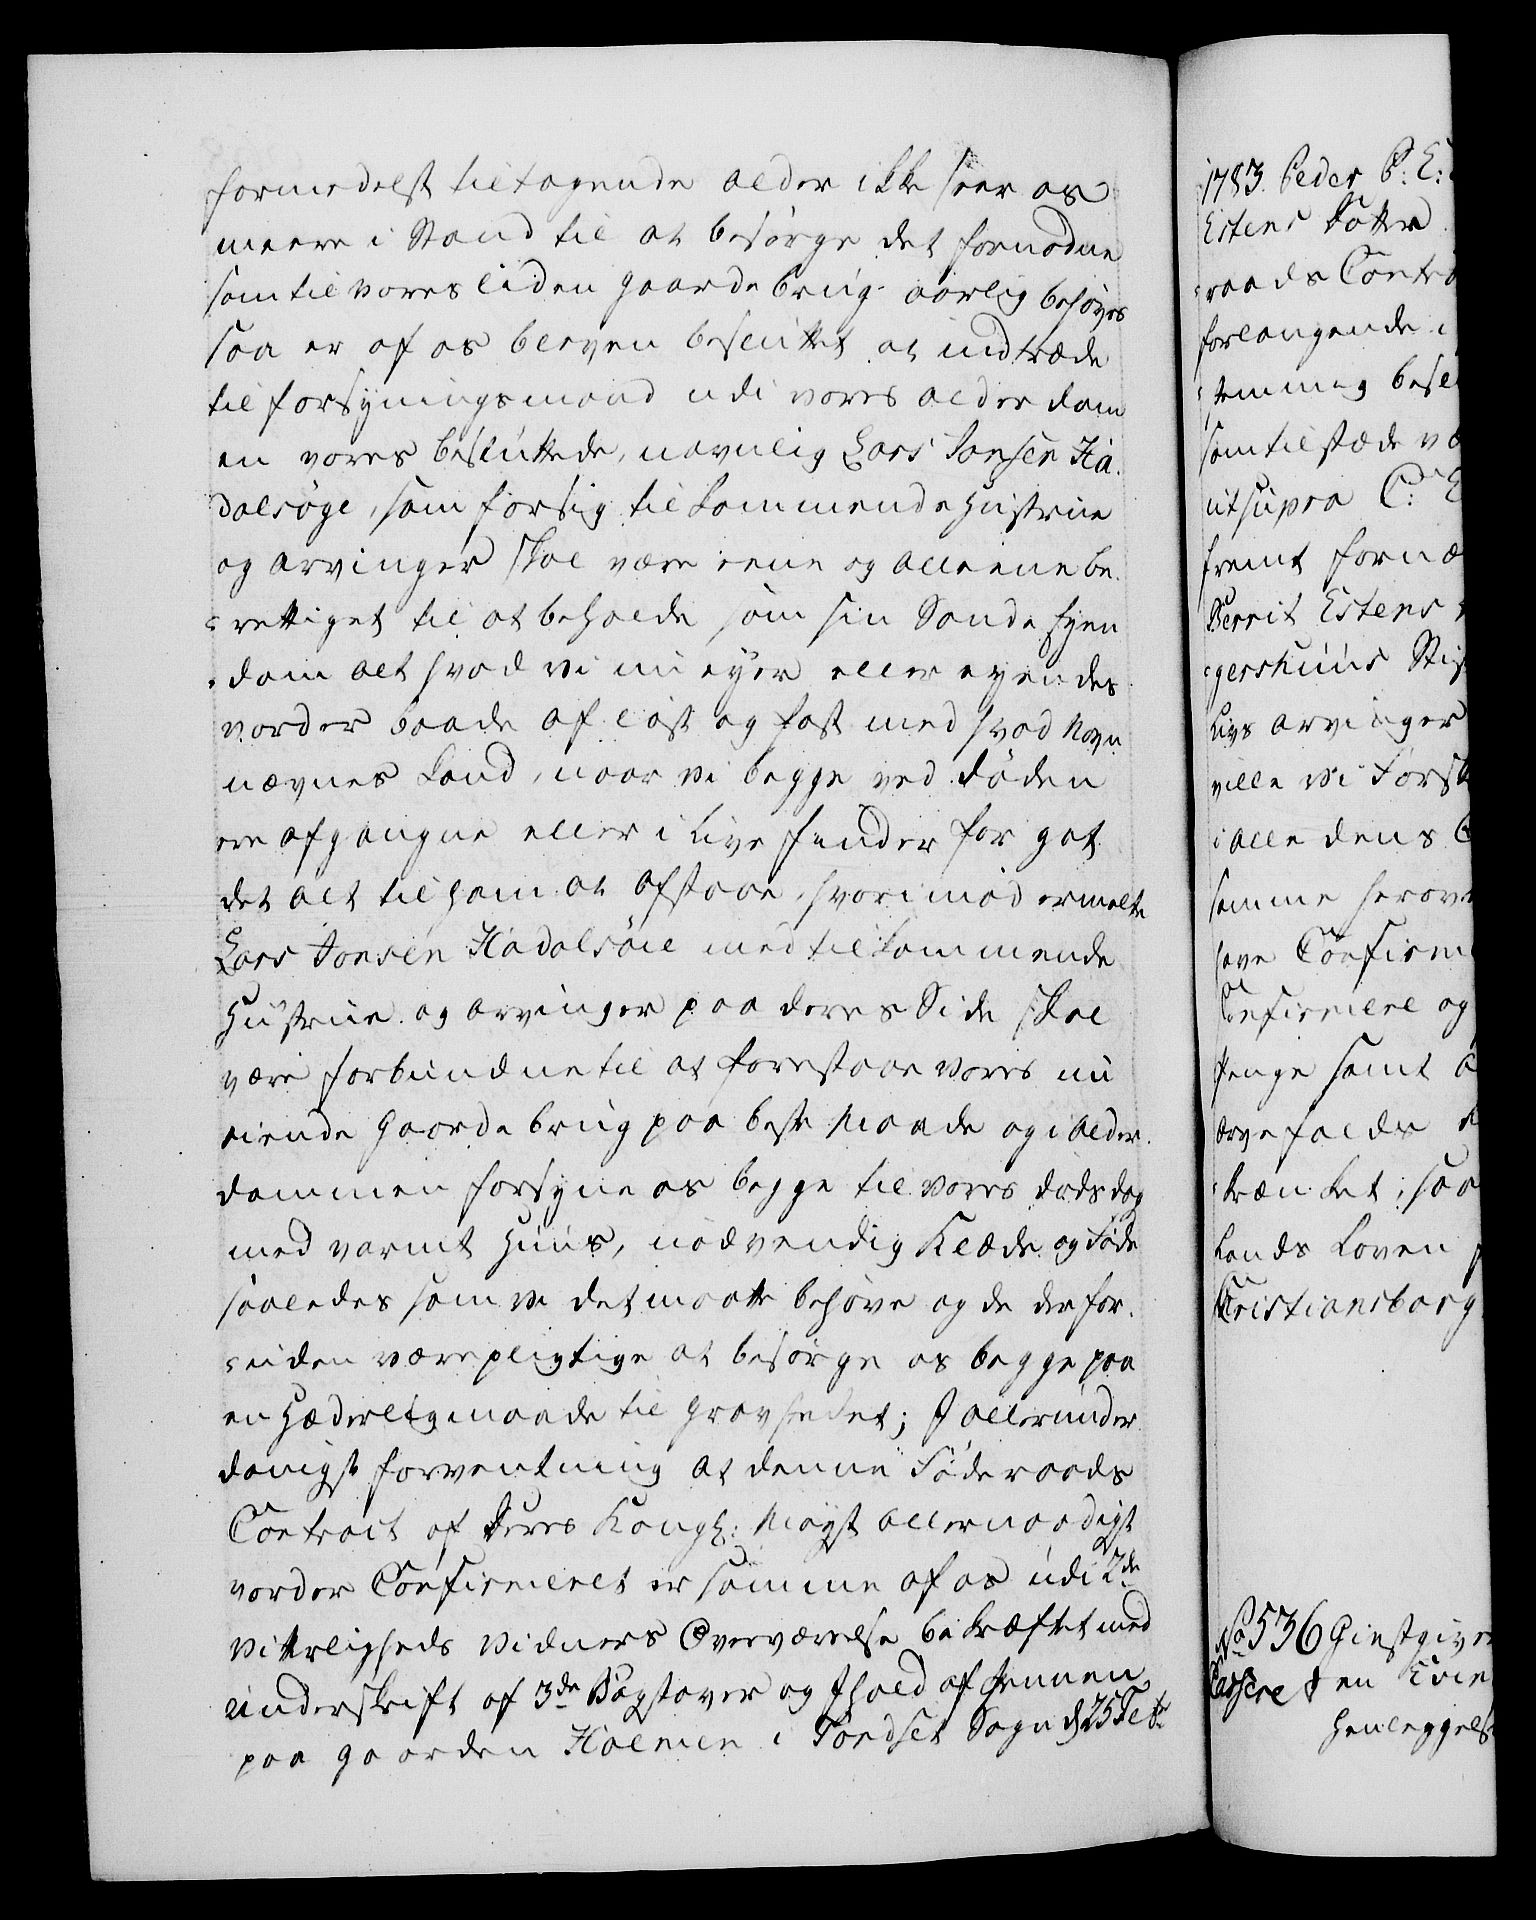 formedelst tiltagende alder ikke seer os
meere i Stand til at besørge det fornødne
som til vores liden gaardebrug aarlig behøves
saa er af os bleven besluttet at indtræde
til forsyningsmand udi vores alderdom
en vores besluttede, navnlig Lars Jonsen Ha
dalsøge, som for sig tilkommende Hustrue
og arvinger skal være eene og alleene be
rettiget til at beholde som sin Sande Eyen
dom alt hvad vi nu eyer eller eyendes
vorder baade af løst og fast med hvad Navn
nævnes kand, naar vi begge ved døden
ere afgangne eller i Live finder for got
det alt til ham at afstaae, hvorimod ermelte
Lars Jonsen Hadalsøie med tilkommende
Hustrue og arvinger paa deres Side skal
være forbundne til at forestaae vores nu
eiende Gaardebrug paa beste Maade og i alder
dommen forsyne os begge til vores dødsdag
med varmt Huus, nødvendig Klæde og Føde
saaledes som vi det maatte behøve og de der for
uden være pligtige at besørge os begge paa
en Hæderlig maade til Gravstedet; J allerunder
danigst forventning at denne Føderaads
Contract af Deres Kongl: Mayst allernaadigst
vorder Confirmeret er samme af os udi 2de
Vitterligheds Vidners Overværelse bekræftet med
underskrift af 3de Bogstaver og Jhold af Pennen
paa gaarden Holmen i Tondset Sogn d 25 Febr
1783. Peder P: E:
Estens Datter
raads Contra
forlangende i
temmig besl
som tilstæde væ
ut supra C: E
fremt fornæ
Berrit Estens
gershuus Stif
Livs arvinger
ville Vi Forsk
i alle dens
samme herove
have Confirm
Confirmere og
Penge samt
arvefalds
krænket, saa
Lands Loven
Christiansborg
No 536 Giestgiver
Carsere en
Henleggels